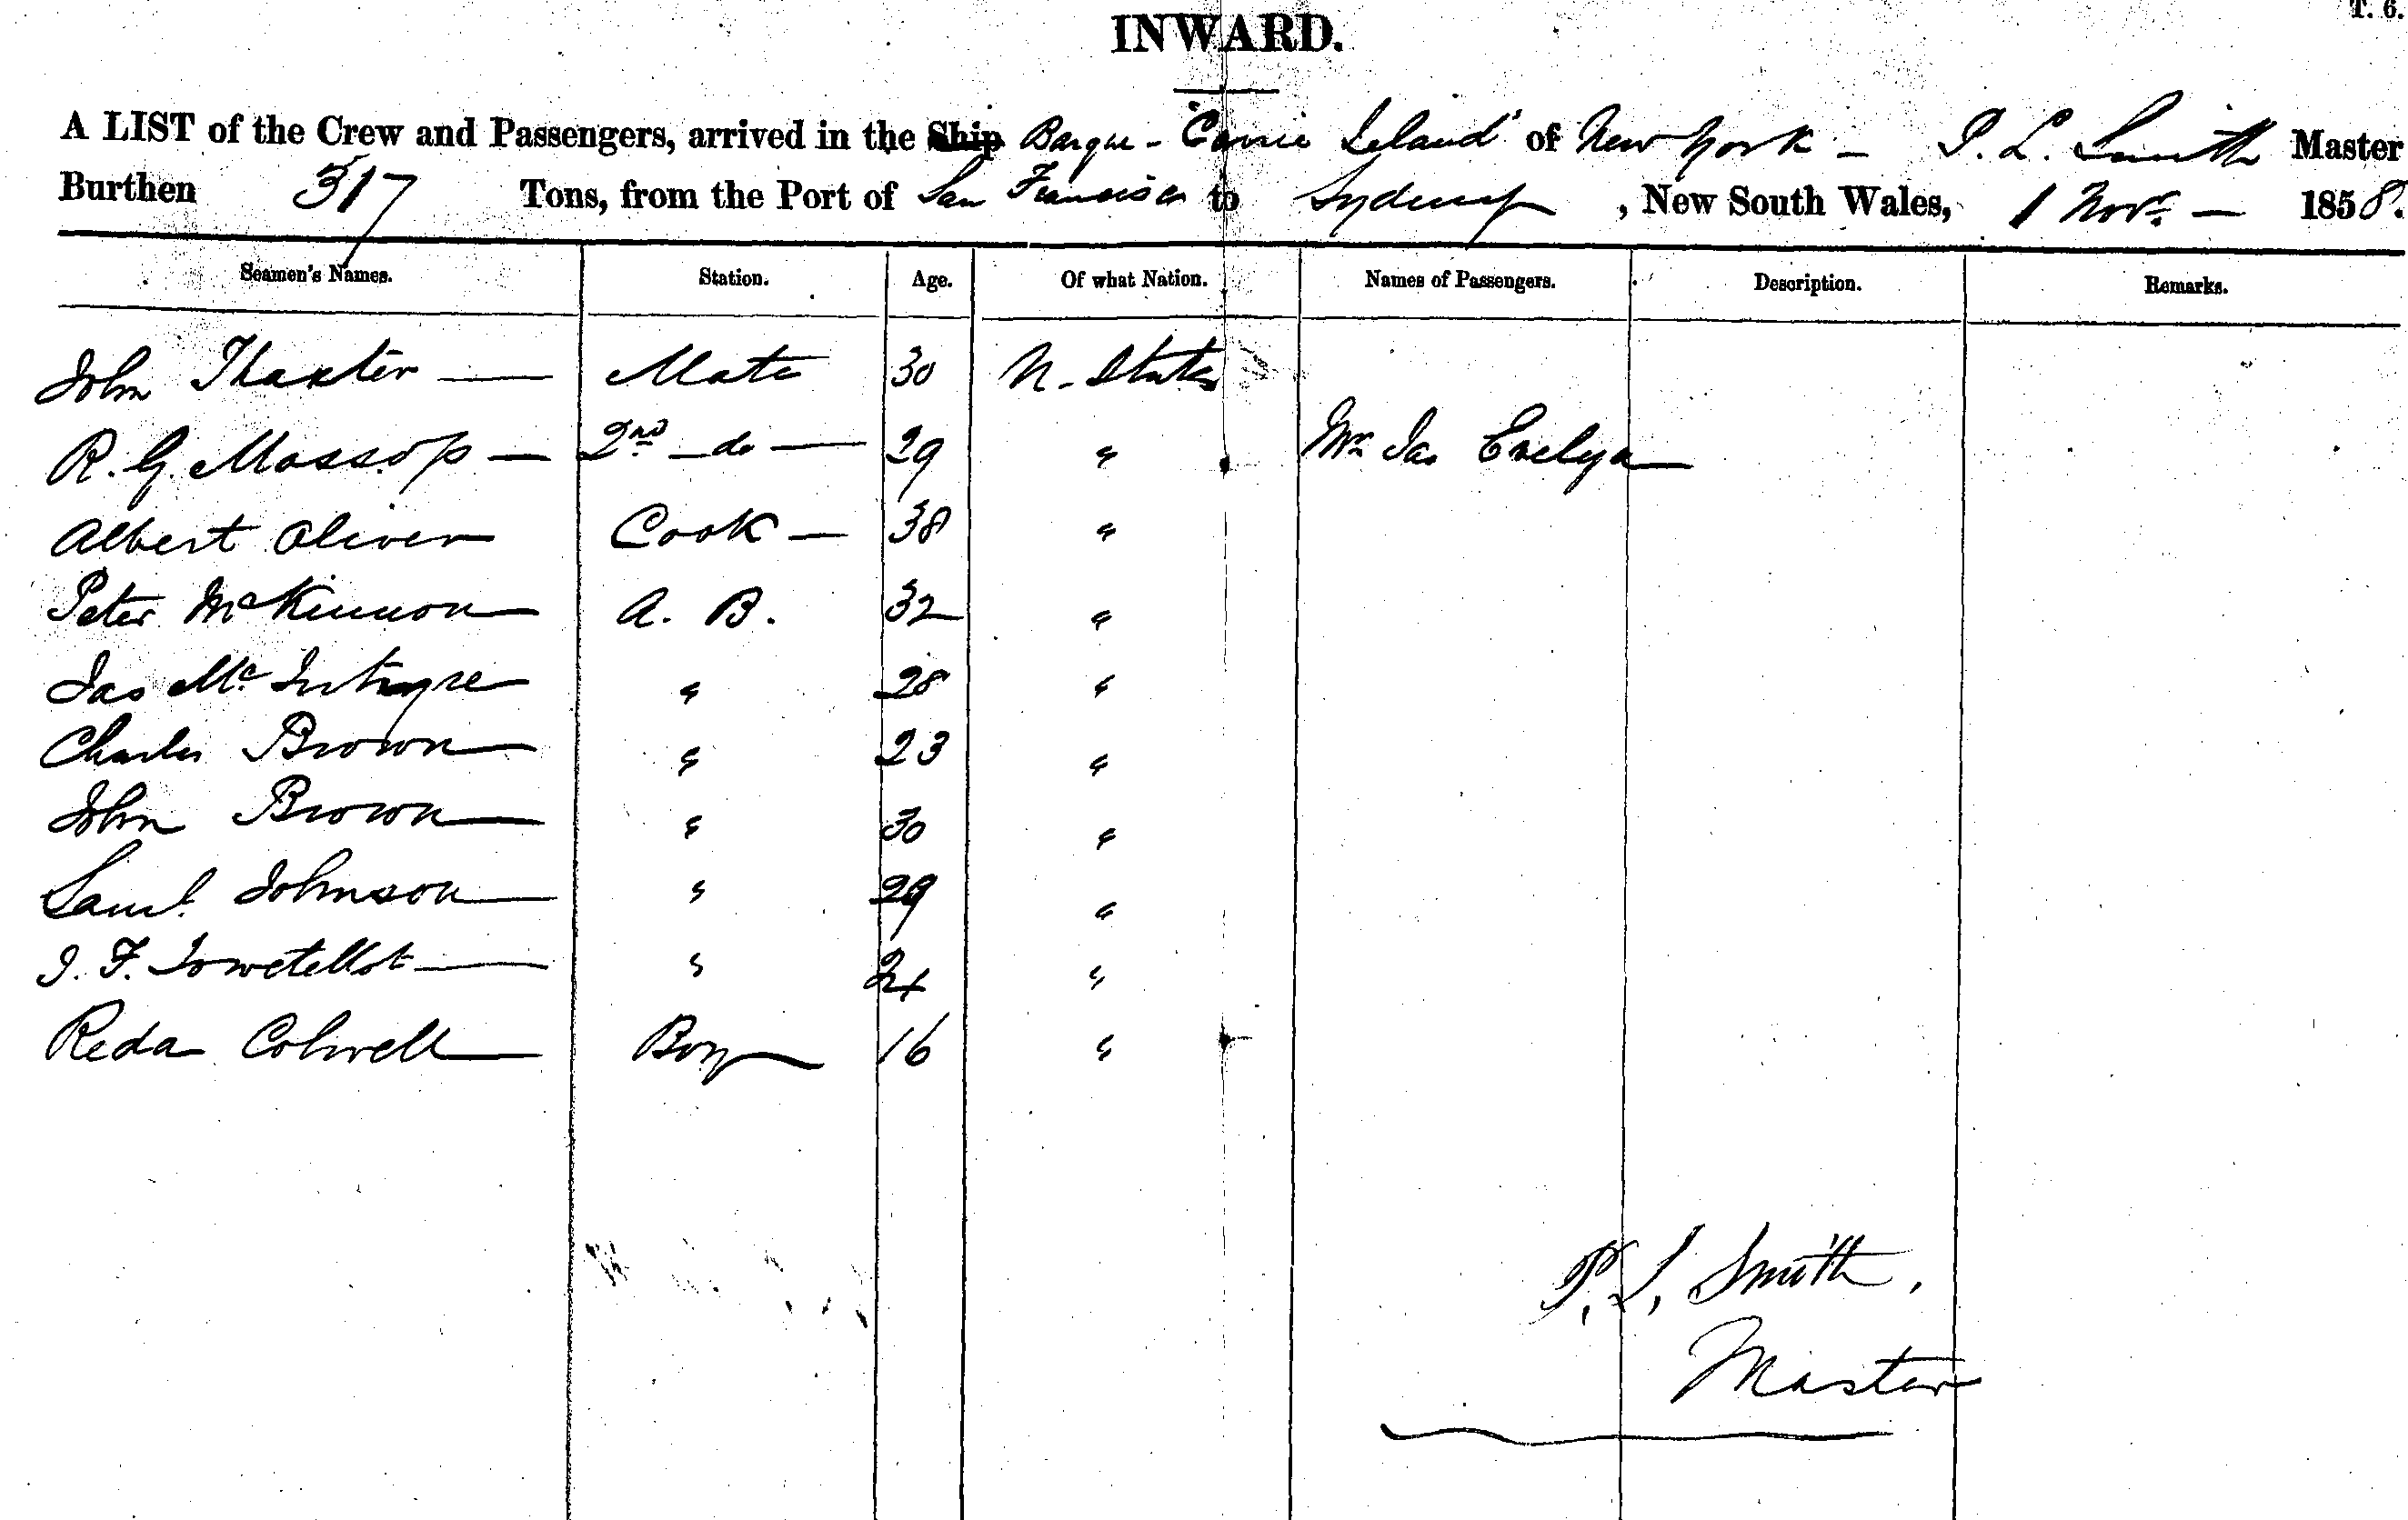 T. 6.
INWARD.
A LIST of the Crew and Passengers, arrived in the Ship Barque - "Carrie Leland" of New York - P. L. Smith Master
Burthen 317 Tons, from the Port of San Francisco to Sydney, New South Wales, 1 Novr. - 1858.
Seamen's Names. Station. Age. Of what Nation. Names of Passengers. Description. Remarks.
John Thaxter — Mate 30 U. States
R. G. Mossop — 2nd do — 29 " Mr Jas Evelyn
Albert Oliver Cook — 38 "
Peter McKinnon A. B. 32 "
Jas McIntyre " 28 "
Charles Brown " 23 "
John Brown " 30 "
Saml. Johnson " 29 "
J. F. " 24 "
Reda Colwell Boy 16 "
P. L. Smith,
Master